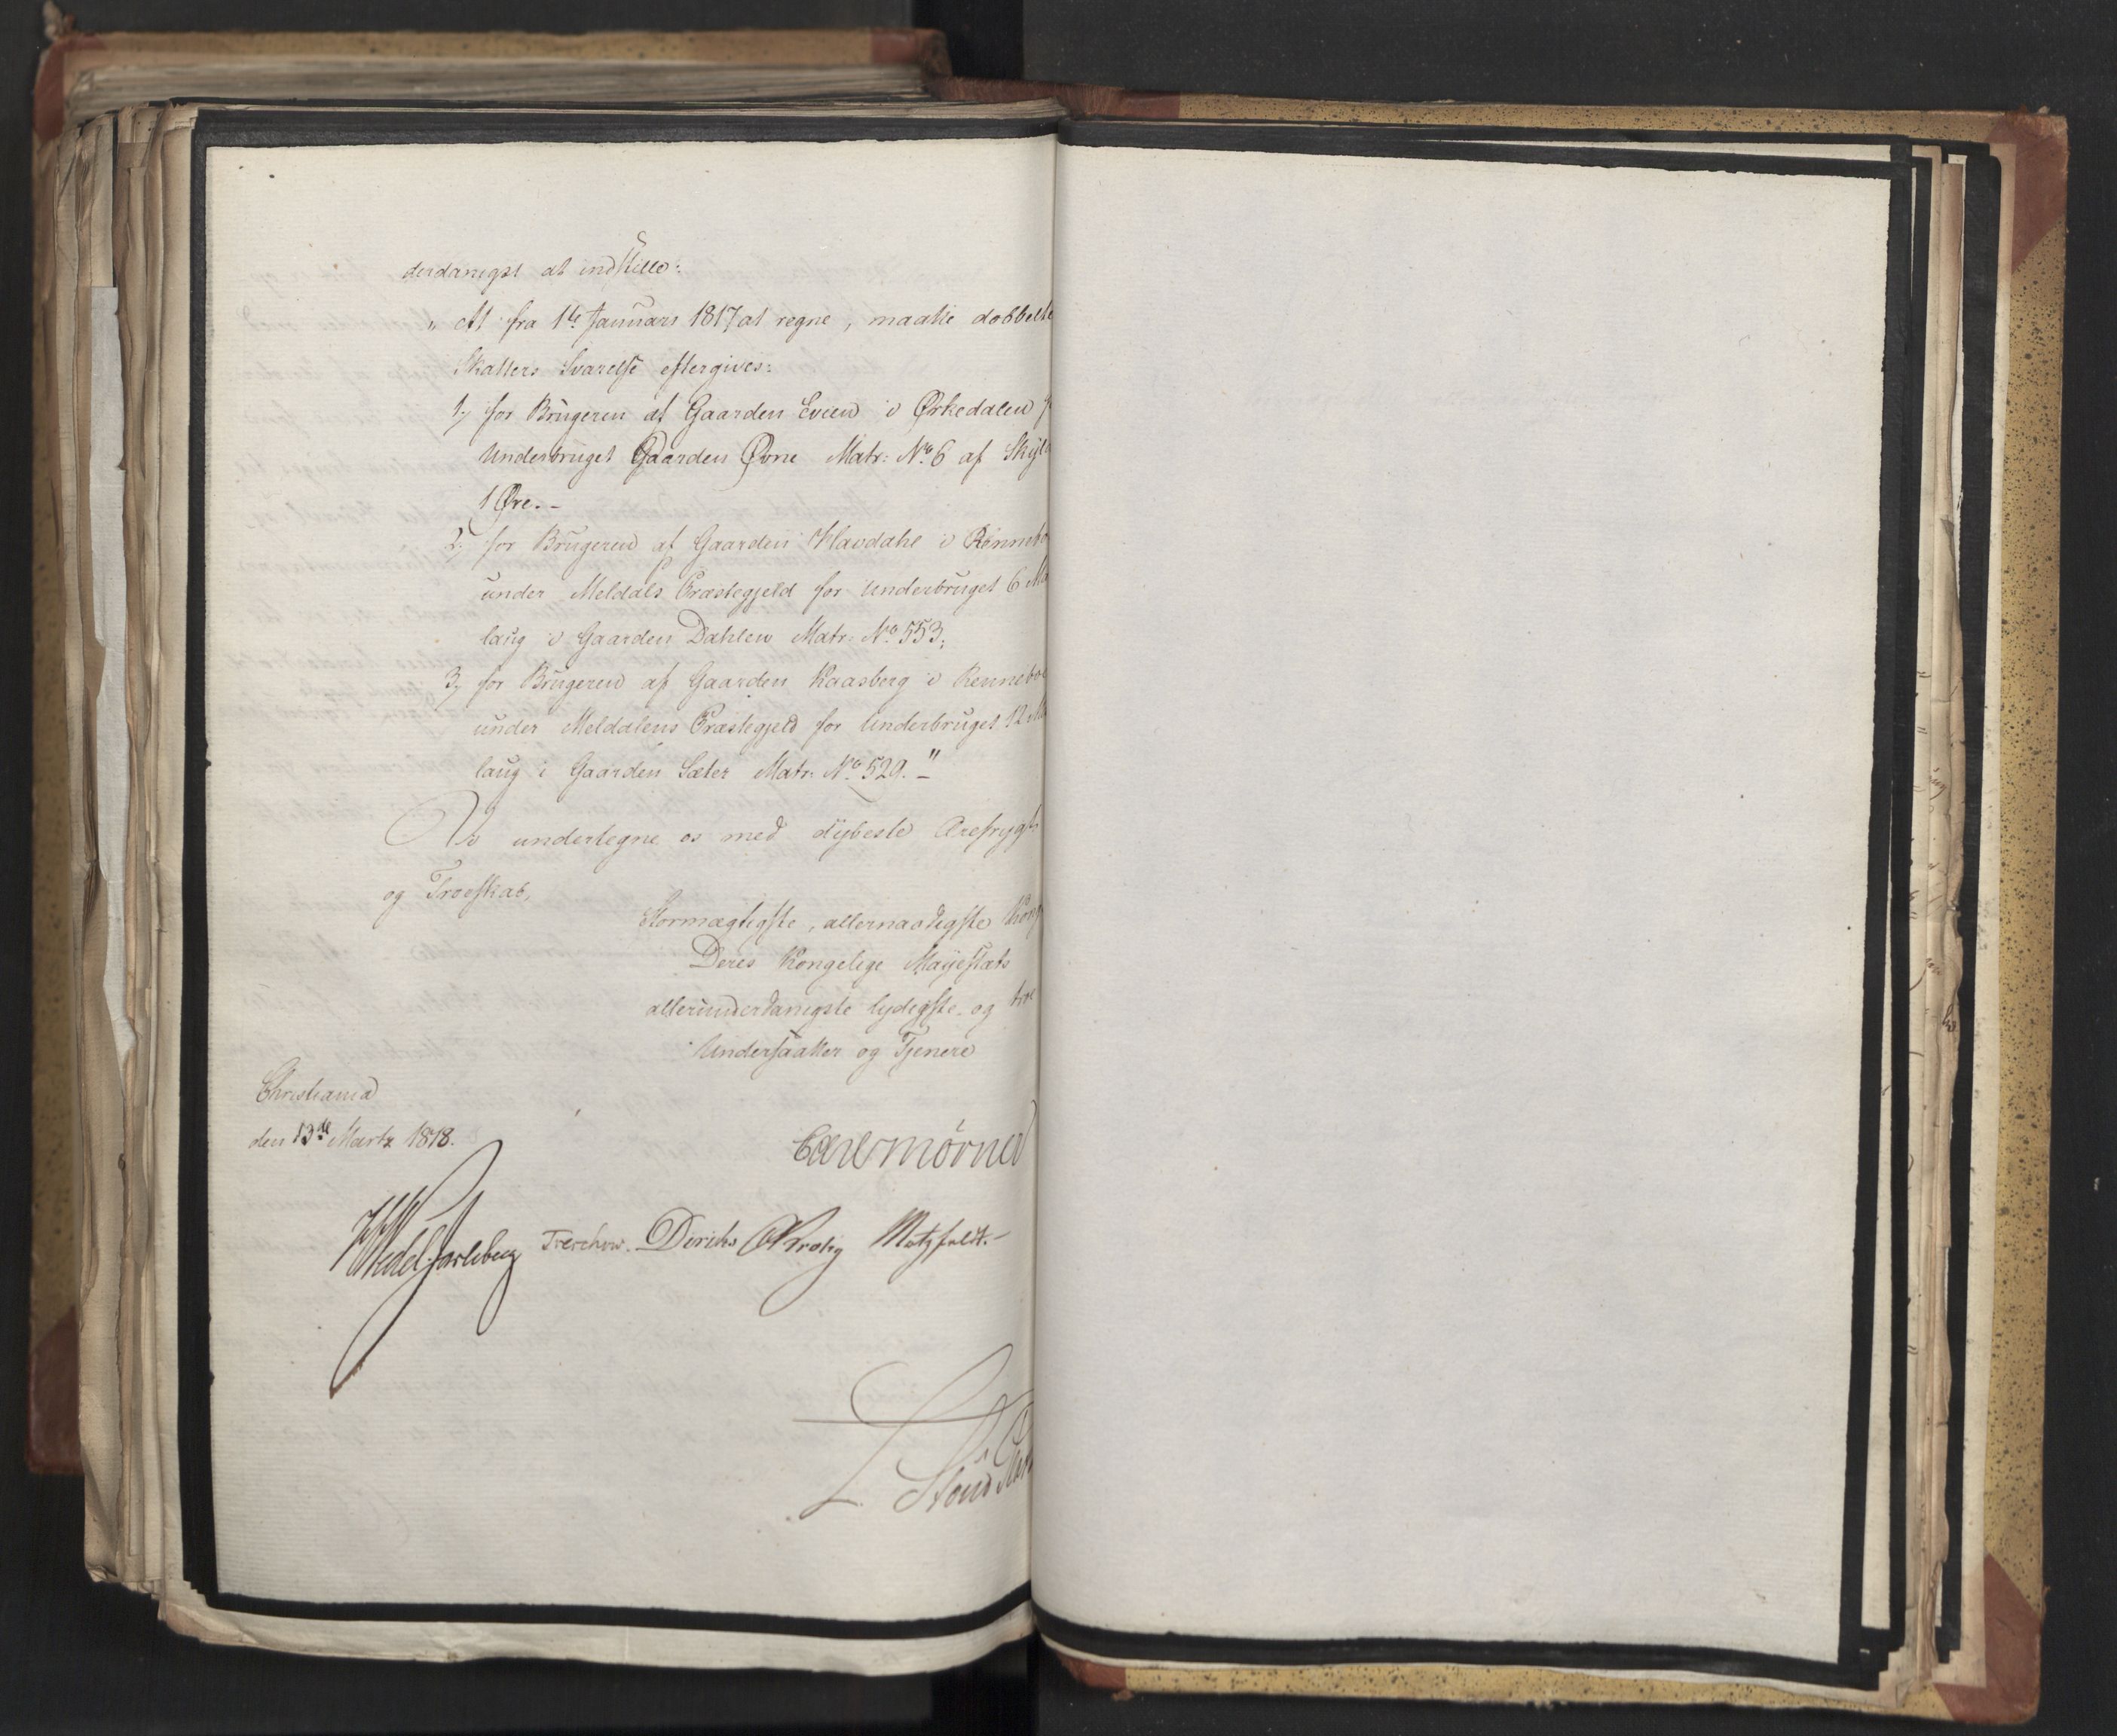 derdanigst at indstille:
„At fra 1te Januars 1817 at regne, maatte dobbelte
Skatters Svarelse eftergives:
1, for Brugeren af Gaarden Evien i Ørkedalen
Underbruget Gaarden Øvne Matr: No 6 af Skyld
1 Øre.-
2, for Brugeren af Gaarden Havdahl i Rennebo
under Meldals Præstegjeld for Underbruget 6 Ma
laug i Gaarden Dahlen Matr: No 553,
3, for Brugeren af Gaarden Kaasberg i Rennebo
under Meldalens Præstegjeld for Underbruget 12 Ma
laug i Gaarden Sæter Matr: No 529."
Vi undertegne os med dybeste Ærefrygt
og Troeskab,
Stormægtigste, allernaadigste Kong
Deres Kongelige Mayestæts
allerunderdanigste lydigste og troe
Undersaatter og Tjenere
Christiania
den 13de Martz 1818.
Carl Mörner
HWedel Jarlsberg Treschow. Diriks CKrohg Motzfeldt.